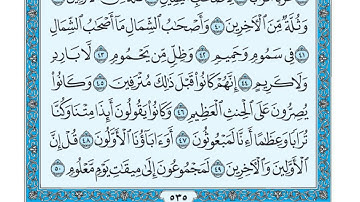 وَثُلَّةٌ مِّنَ ٱلْأَخِرِينَ ٤٠ وَأَصْحَٰبُ ٱلشِّمَالِ مَآ أَصْحَٰبُ ٱلشِّمَالِ
٤١ فِى سَمُومٍ وَحَمِيمٍ ٤٢ وَظِلٍّ مِّن يَحْمُومٍ ٤٣ لَّا بَارِدٍ
وَلَا كَرِيمٍ ٤٤ إِنَّهُمْ كَانُوا۟ قَبْلَ ذَٰلِكَ مُتْرَفِينَ ٤٥ وَكَانُوا۟
يُصِرُّونَ عَلَى ٱلْحِنثِ ٱلْعَظِيمِ ٤٦ وَكَانُوا۟ يَقُولُونَ أَئِذَا مِتْنَا وَكُنَّا
تُرَابًا وَعِظَٰمًا أَءِنَّا لَمَبْعُوثُونَ ٤٧ أَوَءَابَآؤُنَا ٱلْأَوَّلُونَ ٤٨ قُلْ إِنَّ
ٱلْأَوَّلِينَ وَٱلْأَخِرِينَ ٤٩ لَمَجْمُوعُونَ إِلَىٰ مِيقَٰتِ يَوْمٍ مَّعْلُومٍ ٥٠
٥٣٥